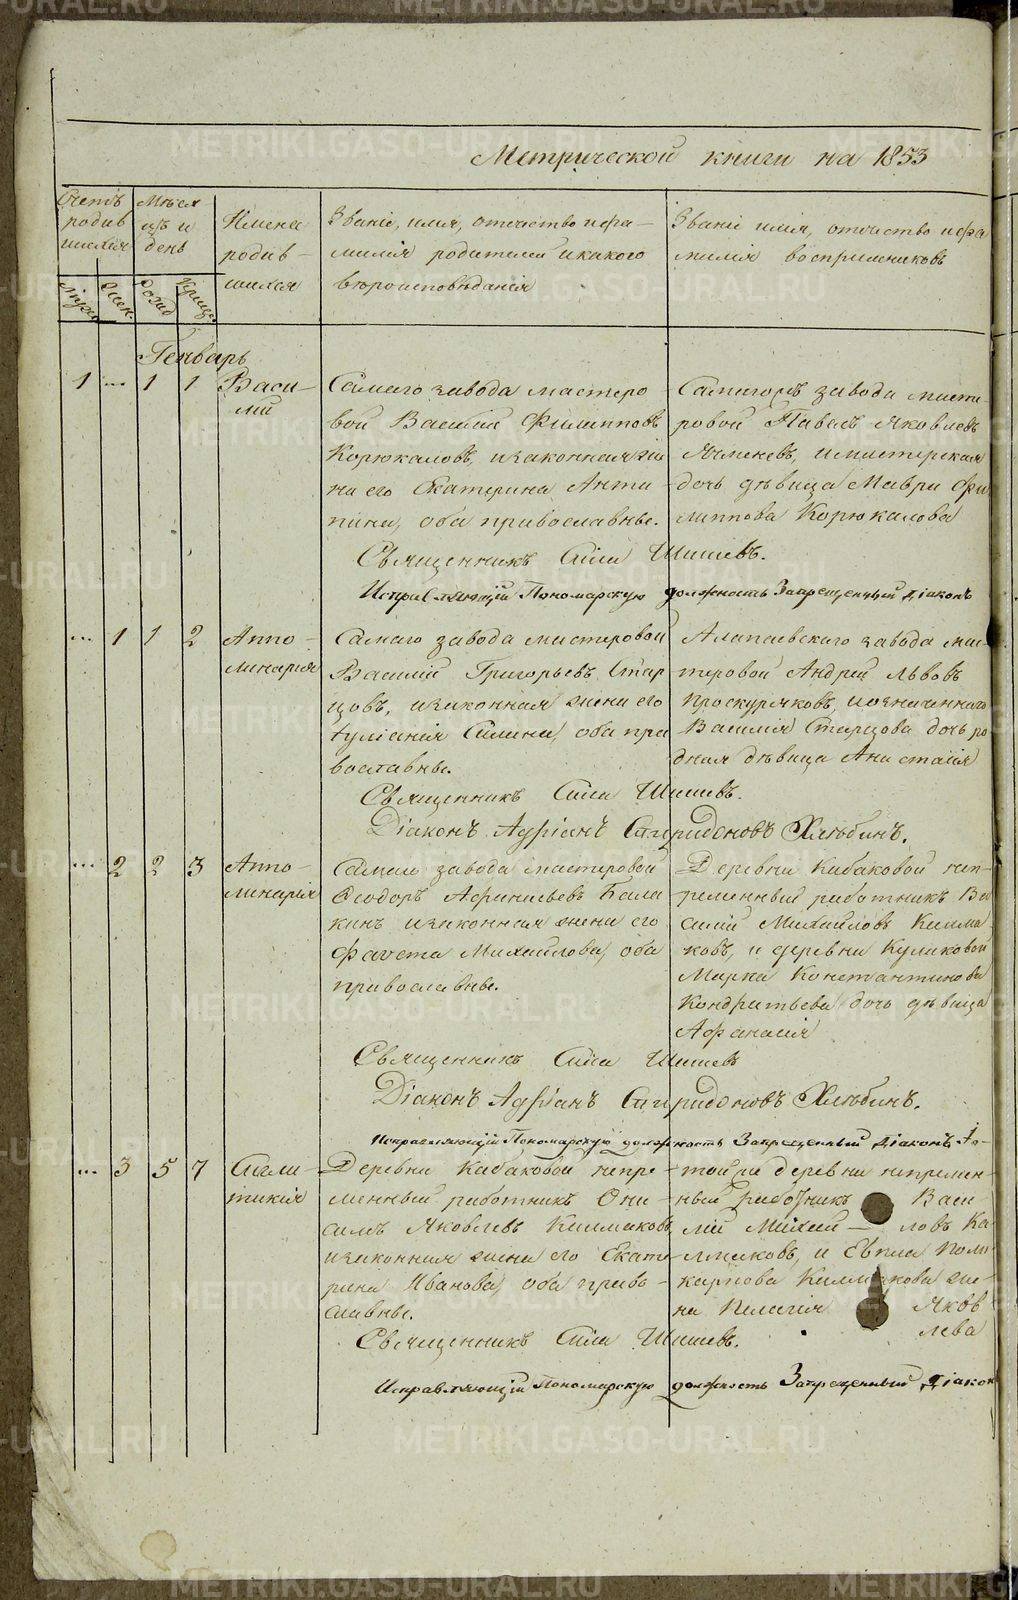 Метрической книги на 1853
Счетъ родив шихся
Мѣся цъ и день
Имена родив- шихся
Званіе, имя, отчество и фа- милія родителей и какого вѣроисповѣданія
Званіе имя, отчество и фа милія воспріемниковъ
Мужес
Женс.
Рожд
Креще
Генварь
1 ... 1 1 Васи- лій
Самаго завода мастеро
вой Василій Филипповъ
Корюкаловъ, и законная же
на его Екатерина Анти
пина, оба православные.
Самагожъ завода масте
ровой Павелъ Яковлевъ
Ячменевъ, и мастерская
дочь дѣвица Мавра Фи
липпова Корюкалова
Священникъ Сила Шишевъ.
Исправляющій Пономарскую должность Запрещенный Діаконъ
... 1 1 2 Аппо- линарія
Самаго завода мастеровой
Василій Григорьевъ Стар
цовъ, и законная жена его
Іуліанія Силина, оба пра
вославные.
Алапаевскаго завода мас-
теровой Андрей Львовъ
Проскуряковъ, и означеннаго
Василія Старцова дочь ро
дная дѣвица Анастасія
Священникъ Сила Шишевъ.
Діаконъ Адріанъ Спиридоновъ Хлѣбинъ.
... 2 2 3 Аппо- линарія
Самаго завода мастеровой
Ѳеодоръ Афанасьевъ Бала
кинъ и законная жена его
Фавста Михайлова, оба
православные.
Деревни Кабаковой неп-
ременный работникъ Ва
силій Михайловъ Калма
ковъ, и деревни Куликовой
Марка Константинова
Кондратьева дочь дѣвица
Афанасія
Священникъ Сила Шишевъ
Діаконъ Адріанъ Спиридоновъ Хлѣбинъ.
Исправляющій Пономарскую должность Запрещенный Діаконъ
... 3 5 7
Деревни Кабаковой непре-
менный работникъ Они-
симъ Яковлевъ Калмаковъ,
и законная жена его Екате-
рина Иванова, оба право-
славные.
Той же деревни непремен-
ный работникъ Васи-
лій Михай— ловъ Ка-
лмаковъ, и Евпла Поли-
карпова Калмакова же-
на Пелагія Яков
лева
Священникъ Сила Шишевъ.
Исправляющій Пономарскую должность Запрещенный Діакон
METRIKI.GASO-URAL.RU